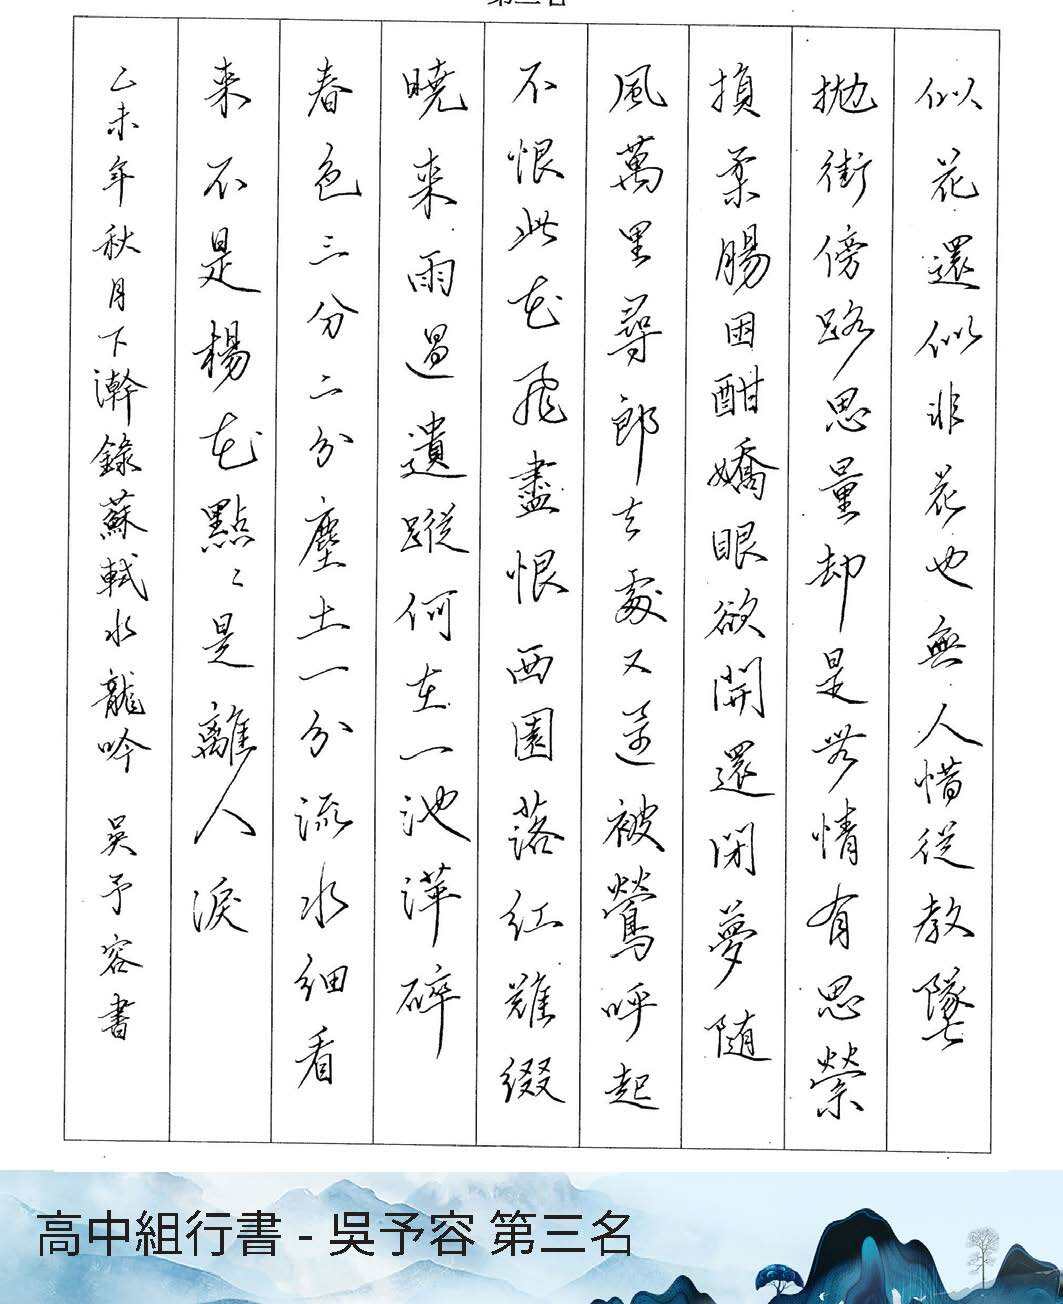 第三名
似花還似非花也無人惜從教墜
拋街傍路思量却是無情有思縈
損柔腸困酣嬌眼欲開還閉夢隨
風萬里尋郎去處又還被鶯呼起
不恨此花飛盡恨西園落紅難綴
曉來雨過遺蹤何在一池萍碎
春色三分二分塵土一分流水細看
來不是楊花點〻是離人淚
乙未年秋月下澣錄蘇軾水龍吟 吳予容書
高中組行書 - 吳予容 第三名